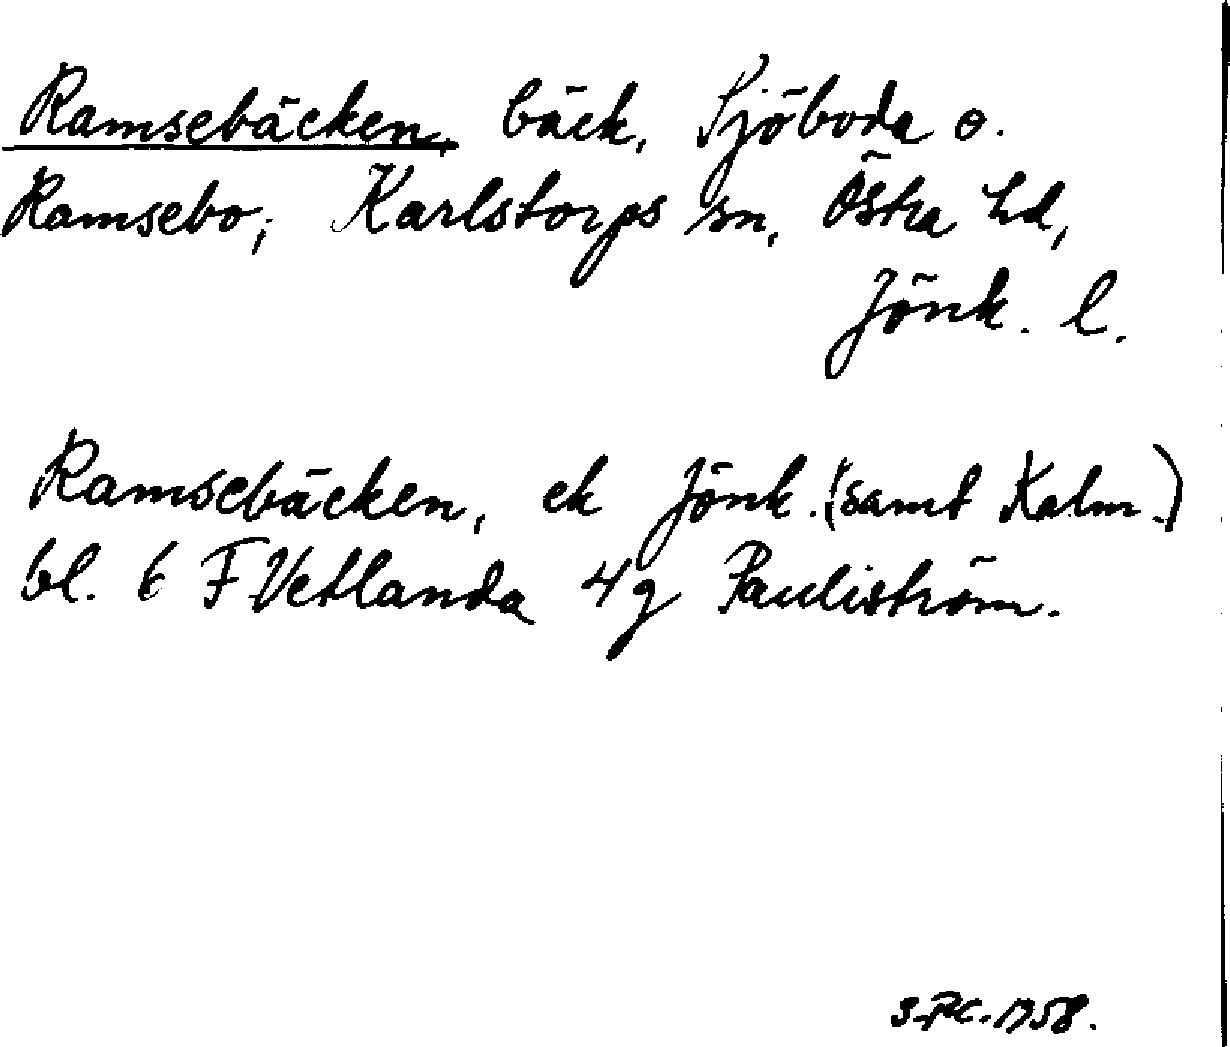 Ramsebäcken, bäck, Sjöboda o.
Ramsebo; Karlstorps sn, Östra hd,
Jönk. l.
Ramsebäcken, ek Jönk. (samt Kalm.)
bl. 6 F Vetlanda 4g Pauliström.
1958.